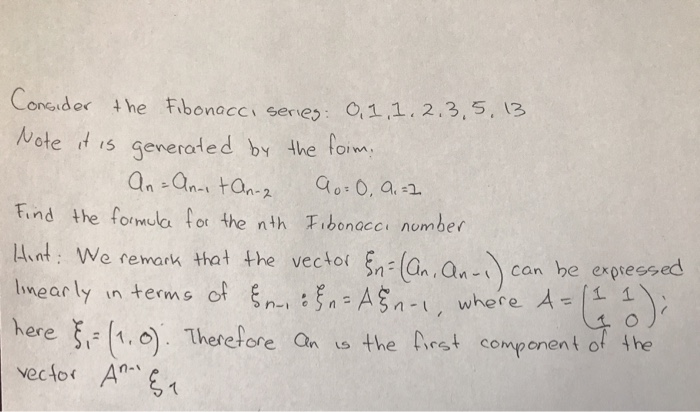 Consider the Fibonacci series: 0,1,1,2,3,5,13
Note it is generated by the form:
an = an-1 + an-2    a0=0, a1=1
Find the formula for the nth Fibonacci number
Hint: We remark that the vector ξn=(an, an-1) can be expressed
linearly in terms of ξn-1 : ξn = Aξn-1, where A = (1 1
1 0);
here ξ1=(1,0). Therefore an is the first component of the
vector A^n-1 ξ1